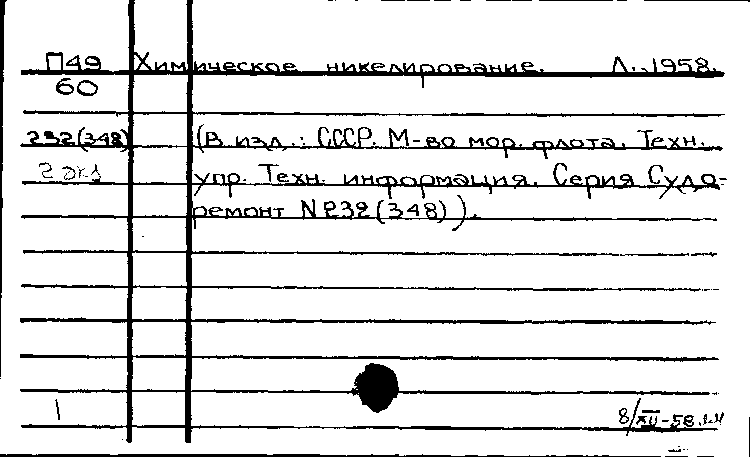 П49 Химическое никелирование. Л., 1958.
60
232(348) (В изд.: СССР. М-во мор. флота. Техн.
2 экз упр. Техн. информация. Серия Судо-
ремонт N232(348)).
1
8/XII-58